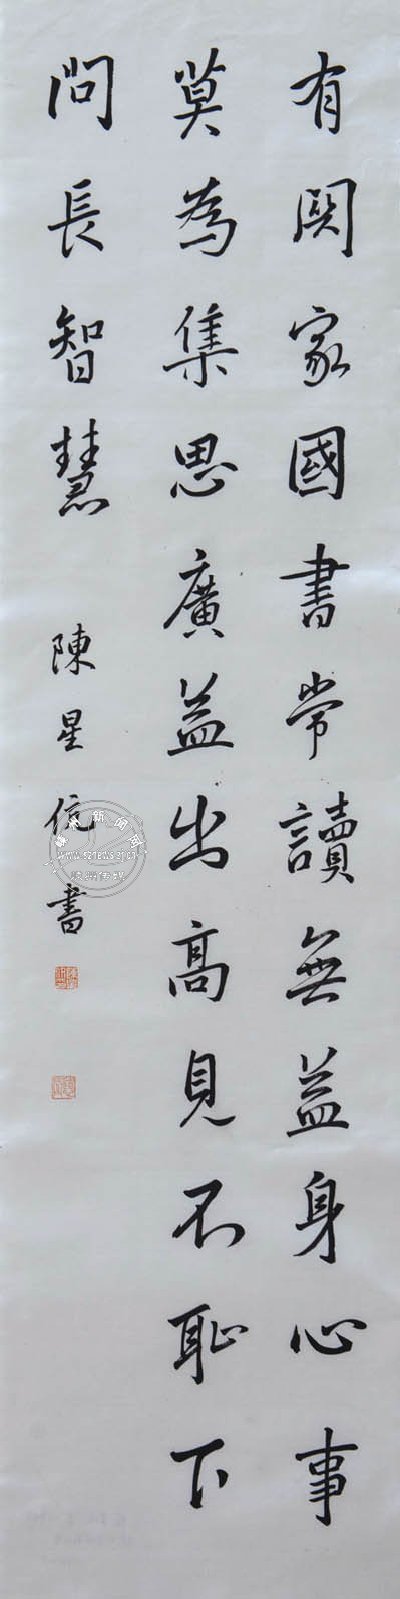 有関家國書常讀無益身心事
莫為集思廣益出高見不恥下
問長智慧
陳星伉書
www.sznews.gov.cn